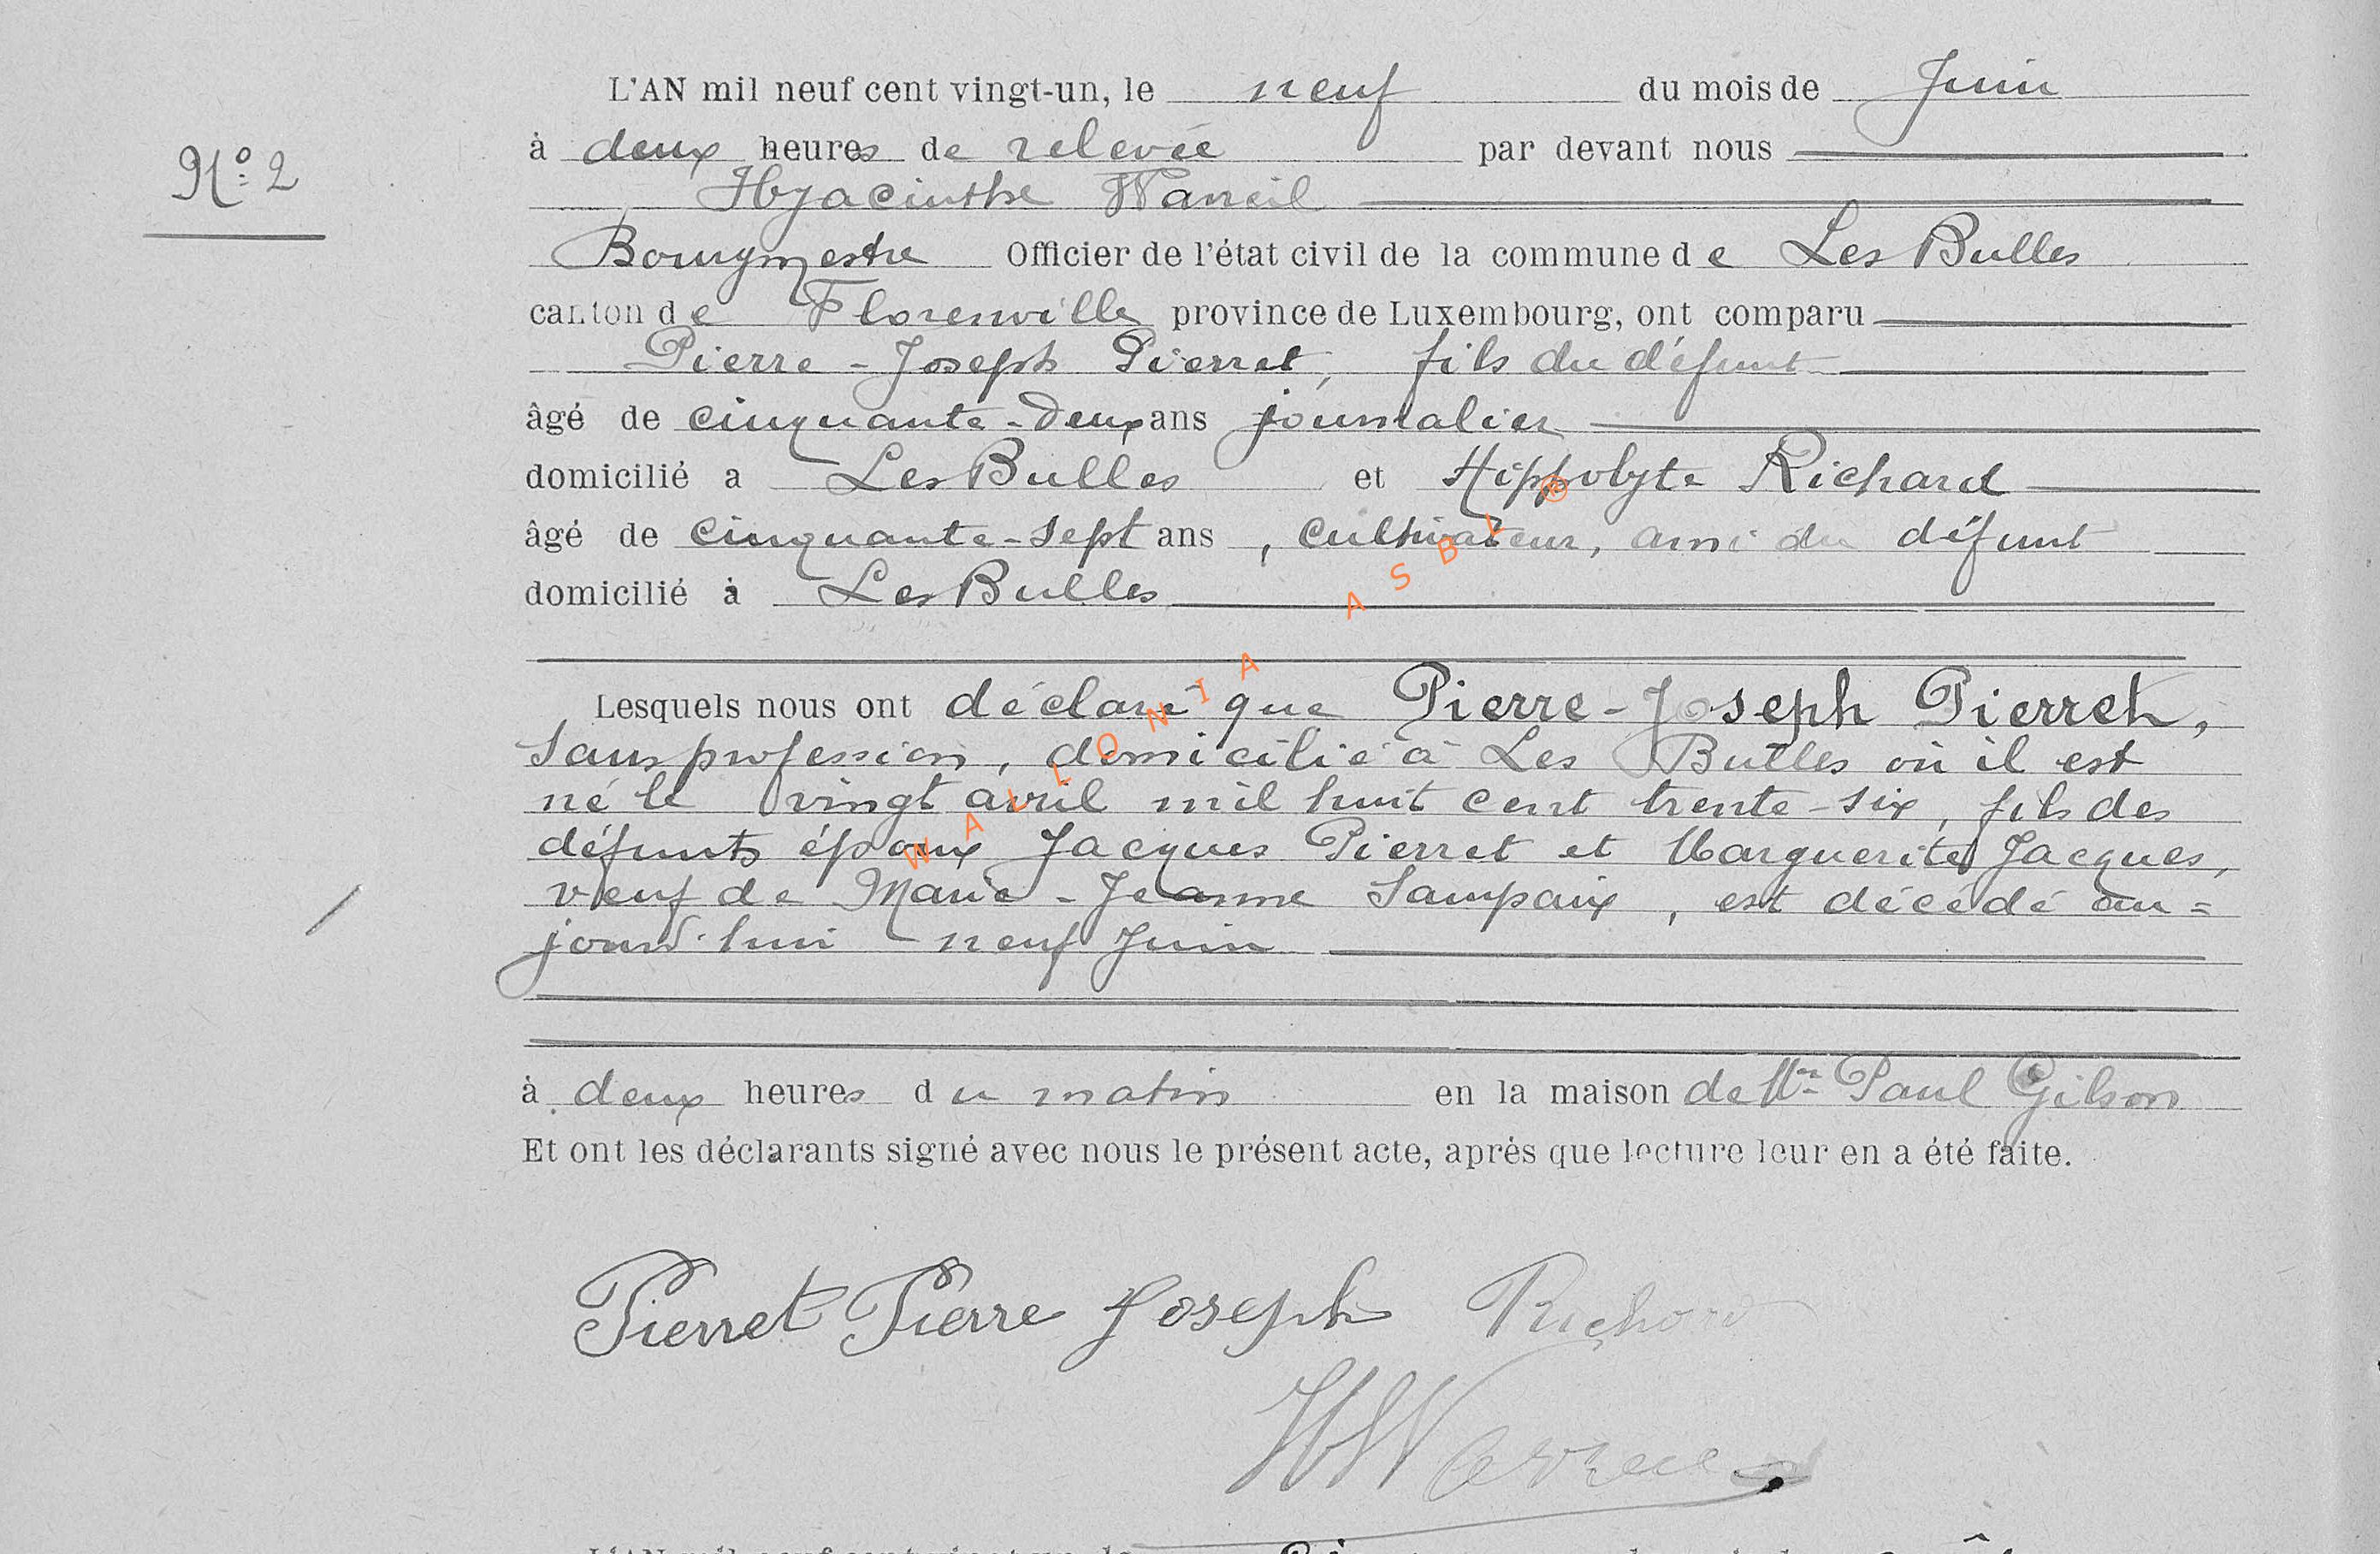 L'AN mil neuf cent vingt-un, le neuf du mois de Juin
à deux heures de relevée par devant nous
Nº 2
Hyacinthe
Bourgmestre Officier de l'état civil de la commune de Les Bulles
canton de Florenville province de Luxembourg, ont comparu
Pierre-Joseph Pierret, fils du défunt
âgé de cinquante-deux ans journalier
domicilié a Les Bulles et Hippolyte Richard
âgé de cinquante-sept ans, cultivateur, ami du défunt
domicilié à Les Bulles
WALLONIA ASBL ®
Lesquels nous ont déclaré que Pierre-Joseph Pierret,
sans profession, domicilié à Les Bulles où il est
né le vingt avril mil huit cent trente-six, fils des
défunts époux Jacques Pierret et Marguerite Jacques,
veuf de Marie-Jeanne Sampaix, est décédé au=
jourd'hui neuf Juin
à deux heures du matin en la maison de Mr Paul Gilson
Et ont les déclarants signé avec nous le présent acte, après que lecture leur en a été faite.
Pierret Pierre Joseph Richard